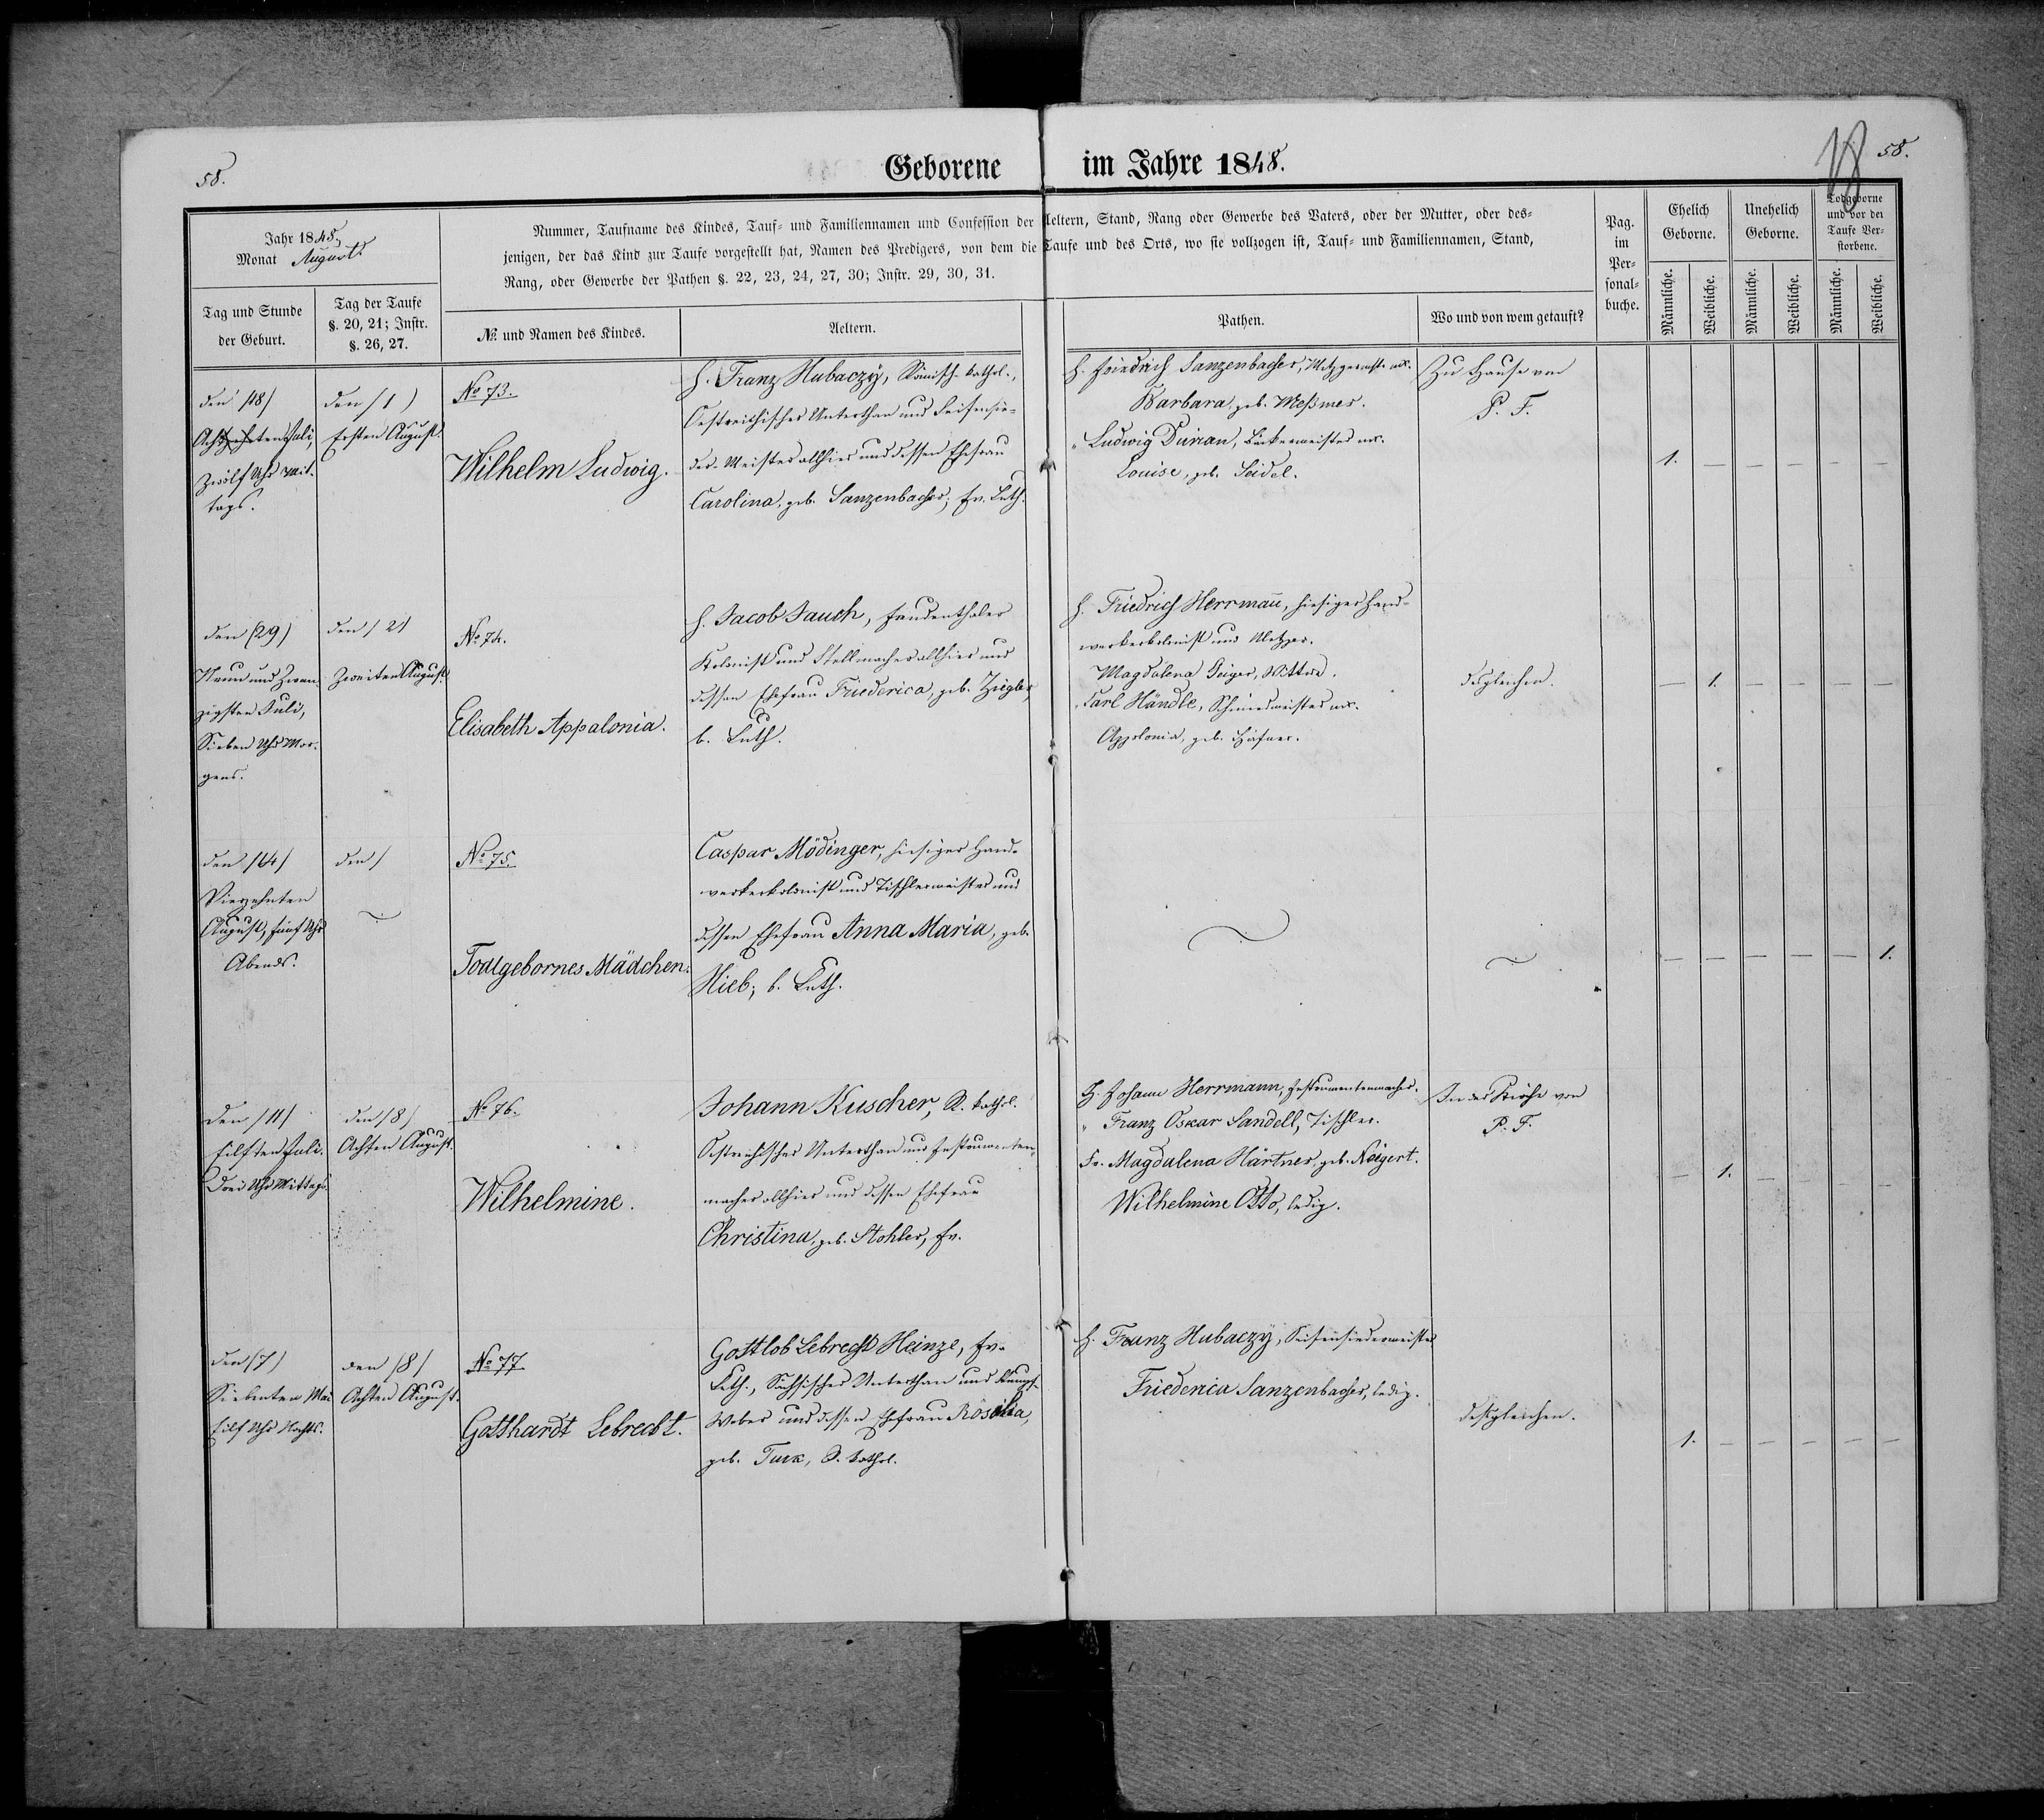 58.
Geborene im Jahre 1848.
58.
Jahr 1848,
Monat August.
Tag und Stunde
der Geburt.
Tag der Taufe
§. 20, 21; Instr.
§. 26, 27.
Nummer, Taufname des Kindes, Tauf- und Familiennamen und Confession der Aeltern, Stand, Rang oder Gewerbe des Vaters, oder der Mutter, oder des-
jenigen, der das Kind zur Taufe vorgestellt hat, Namen des Predigers, von dem die Taufe und des Orts, wo sie vollzogen ist, Tauf- und Familiennamen, Stand,
Rang, oder Gewerbe der Pathen §. 22, 23, 24, 27, 30; Instr. 29, 30, 31.
№. und Namen des Kindes.
Aeltern.
Pathen.
Wo und von wem getauft?
Pag.
im
Per-
sonal-
buche.
Ehelich
Geborne.
Unehelich
Geborne.
Todgeborne
und vor der
Taufe Ver-
storbene.
Männliche.
Weibliche.
Männliche.
Weibliche.
Männliche.
Weibliche.
den (18)
Achtzehnten Juli,
Zwölf Uhr Mit-
tags.
den (1)
Ersten August.
No 73.
Wilhelm Ludwig.
H. Franz Hubaczy, Römisch-kathol.,
Oestreichischer Unterthan und Seifensie-
der-Meister allhier und dessen Ehefrau
Carolina, geb. Sanzenbacher; Ev. Luth.
H. Friedrich Sanzenbacher, Metzgermstr. ux.
Barbara, geb. Meßmer.
" Ludwig Durian, Bäckermeister ux.
Louise, geb. Seidel.
Zu Hause von
P. F.
1. — — — — —
den (29)
Neun und Zwan-
zigsten Juli,
Sieben Uhr Mor-
gens.
den (2)
Zweiten August.
No 74.
Elisabeth Appalonia.
H. Jacob Jauch, Freudenthaler
Kolonist und Stellmacher allhier und
dessen Ehefrau Friederica, geb. Ziegler,
b. Luth.
H. Friedrich Herrmann, hiesiger Hand-
werkerkolonist und Metzger.
Magdalena Geiger, Wittwe.
Carl Händle, Schmiedmeister ux.
Appolonia, geb. Häfner.
desgleichen.
— 1. — — — —
den (14)
Vierzehnten
August, fünf Uhr
Abends.
den )
No 75.
Todtgebornes Mädchen.
Caspar Mödinger, hiesiger Hand-
werkerkolonist und Tischlermeister und
dessen Ehefrau Anna Maria, geb.
Hieb; b. Luth.
— — — — — 1.
den (11)
Eilften Juli.
Drei Uhr Mittags.
den (8)
Achten August.
No 76.
Wilhelmine.
Johann Kuscher, R. kathol.
Oestreichischer Unterthan und Instrumenten-
macher allhier und dessen Ehefrau
Christina, geb. Stohler, Ev.
H. Johann Herrmann, Instrumentenmacher.
" Franz Oskar Sandell, Tischler.
Fr. Magdalena Härtner, geb. Neigert.
Wilhelmine Otto, ledig.
In der Kirche von
P. F.
— 1. — — — —
den (7)
Siebenten Mai
Eilf Uhr Nachts.
den (8)
Achten August.
No 77
Gotthardt Lebrecht.
Gottlob Lebrecht Heinze, Ev.
Luth., Sächsischer Unterthan und
Weber und dessen Ehefrau Rosalia,
geb. Turk, R. kathol.
H. Franz Hubaczy, Seifensiedermeister
Friederica Sanzenbacher, ledig.
desgleichen.
1. — — — — —